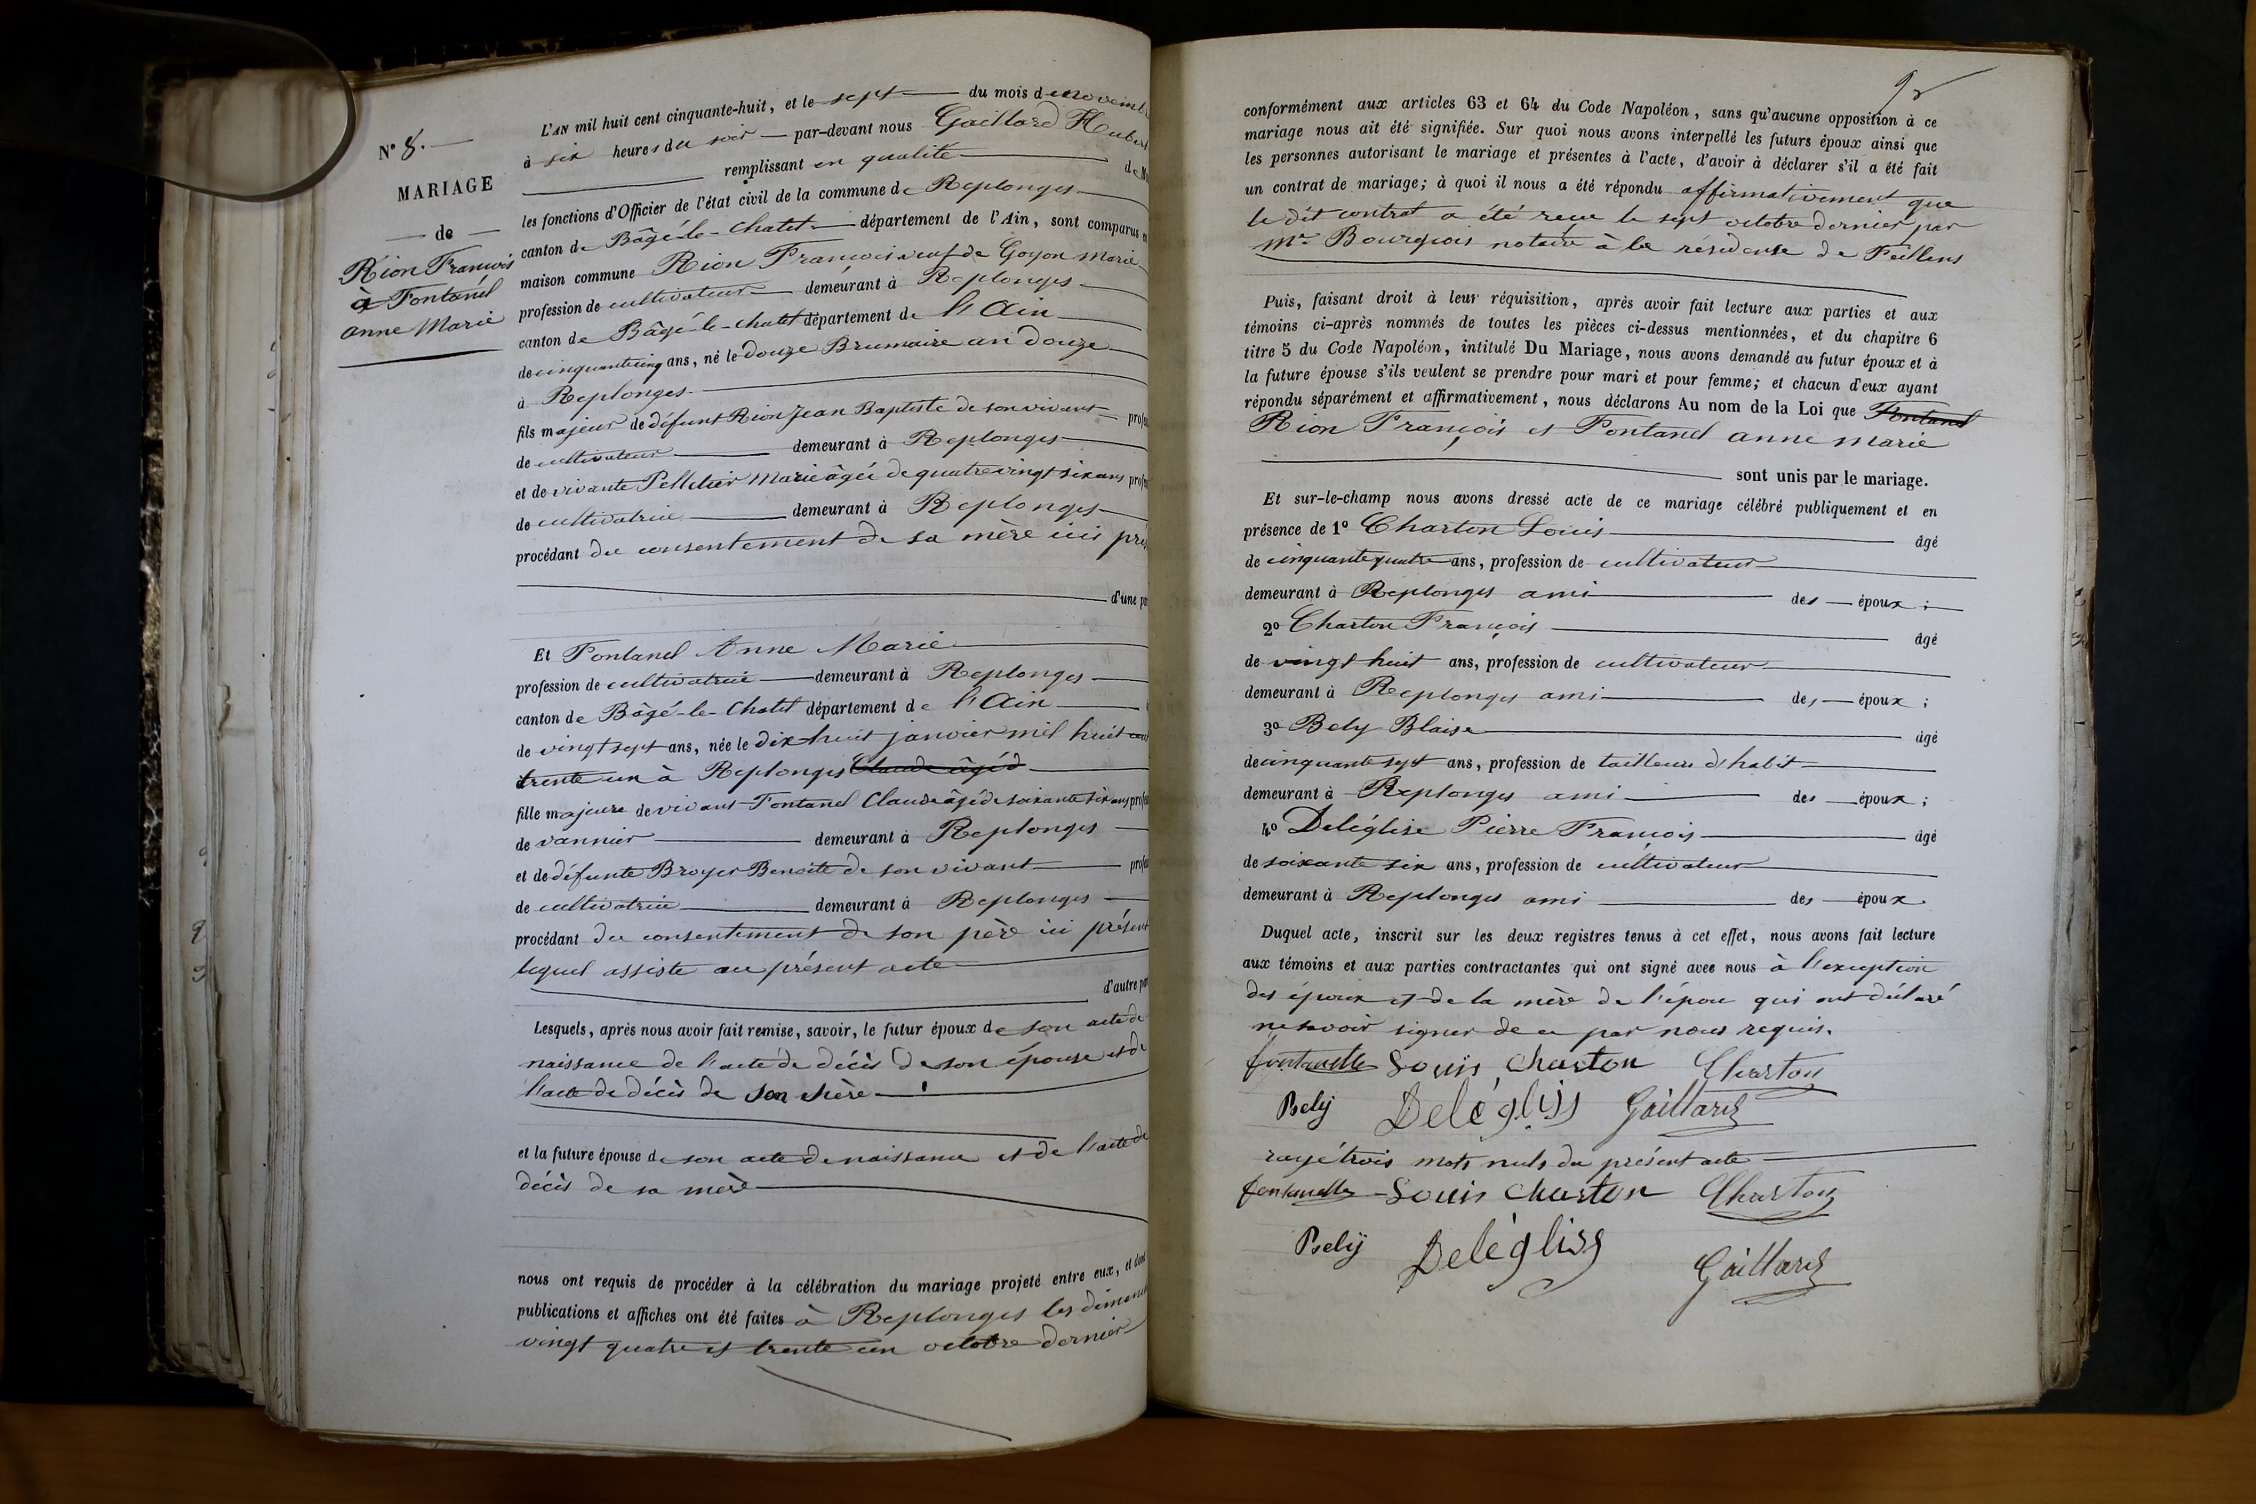 N° 8.
MARIAGE
de
Rion François
à Fontanel
anne Marie
L'AN mil huit cent cinquante-huit, et le sept du mois de novemb
à six heures du soir par-devant nous Gaillard Hubert
remplissant en qualité de M
les fonctions d'Officier de l'état civil de la commune de Replonges
canton de Bâgé-le-Chatel département de l'Ain, sont comparus en
maison commune Rion François veuf de Goyon Marie
profession de cultivateur demeurant à Replonges
canton de Bâgé-le-chatel département de l'Ain
de cinquante cinq ans, né le Douze Brumaire an douze
à Replonges
fils majeur de défunt Rion Jean Baptiste de son vivant profes
de cultivateur demeurant à Replonges
et de vivante Pelletier Marie âgée de quatre vingt six ans profes
de cultivatrice demeurant à Replonges
procédant du consentement de sa mère ici prés
d'une par
Et Fontanel Anne Marie
profession de cultivatrice demeurant à Replonges
canton de Bâgé-le-Chatel département de l'Ain
de vingt sept ans, née le Dix huit janvier mil huit cent
trente un à Replonges Claude âgé d
fille majeure de vivant Fontanel Claude âgé de soixante six ans profes
de vannier demeurant à Replonges
et de défunte Broyer Benoite de son vivant profes
de cultivatrice demeurant à Replonges
procédant du consentement de son père ici présent
lequel assiste au présent acte
d'autre par
Lesquels, après nous avoir fait remise, savoir, le futur époux de son acte de
naissance de l'acte de décès de son épouse et de
l'acte de décès de son père
et la future épouse de son acte de naissance et de l'acte de
décès de sa mère
nous ont requis de procéder à la célébration du mariage projeté entre eux, et dont
publications et affiches ont été faites à Replonges les dimanc
vingt quatre et trente un octobre dernier
conformément aux articles 63 et 64 du Code Napoléon, sans qu'aucune opposition à ce
mariage nous ait été signifiée. Sur quoi nous avons interpellé les futurs époux ainsi que
les personnes autorisant le mariage et présentes à l'acte, d'avoir à déclarer s'il a été fait
un contrat de mariage; à quoi il nous a été répondu affirmativement que
le dit contrat a été reçu le sept octobre dernier par
Mre Bourgeois notaire à la résidence de Feillens
Puis, faisant droit à leur réquisition, après avoir fait lecture aux parties et aux
témoins ci-après nommés de toutes les pièces ci-dessus mentionnées, et du chapitre 6
titre 5 du Code Napoléon, intitulé Du Mariage, nous avons demandé au futur époux et à
la future épouse s'ils veulent se prendre pour mari et pour femme; et chacun d'eux ayant
répondu séparément et affirmativement, nous déclarons Au nom de la Loi que Fontanel
Rion François et Fontanel anne marie
sont unis par le mariage.
Et sur-le-champ nous avons dressé acte de ce mariage célébré publiquement et en
présence de 1° Charton Louis âgé
de cinquante quatre ans, profession de cultivateur
demeurant à Replonges ami des époux ;
2° Charton François âgé
de vingt huit ans, profession de cultivateur
demeurant à Replonges ami des époux ;
3° Bely Blaise âgé
de cinquante sept ans, profession de tailleur d'habit
demeurant à Replonges ami des époux ;
4° Deléglise Pierre François âgé
de soixante six ans, profession de cultivateur
demeurant à Replonges ami des époux.
Duquel acte, inscrit sur les deux registres tenus à cet effet, nous avons fait lecture
aux témoins et aux parties contractantes qui ont signé avec nous à l'exception
des époux et de la mère de l'époux qui ont déclaré
ne savoir signer de ce par nous requis.
fontanelle Louis Charton Charton
Bely Deléglise Gaillard
rayé trois mots nuls du présent acte
fontanelle Louis Charton Charton
Bely Deléglise
Gaillard